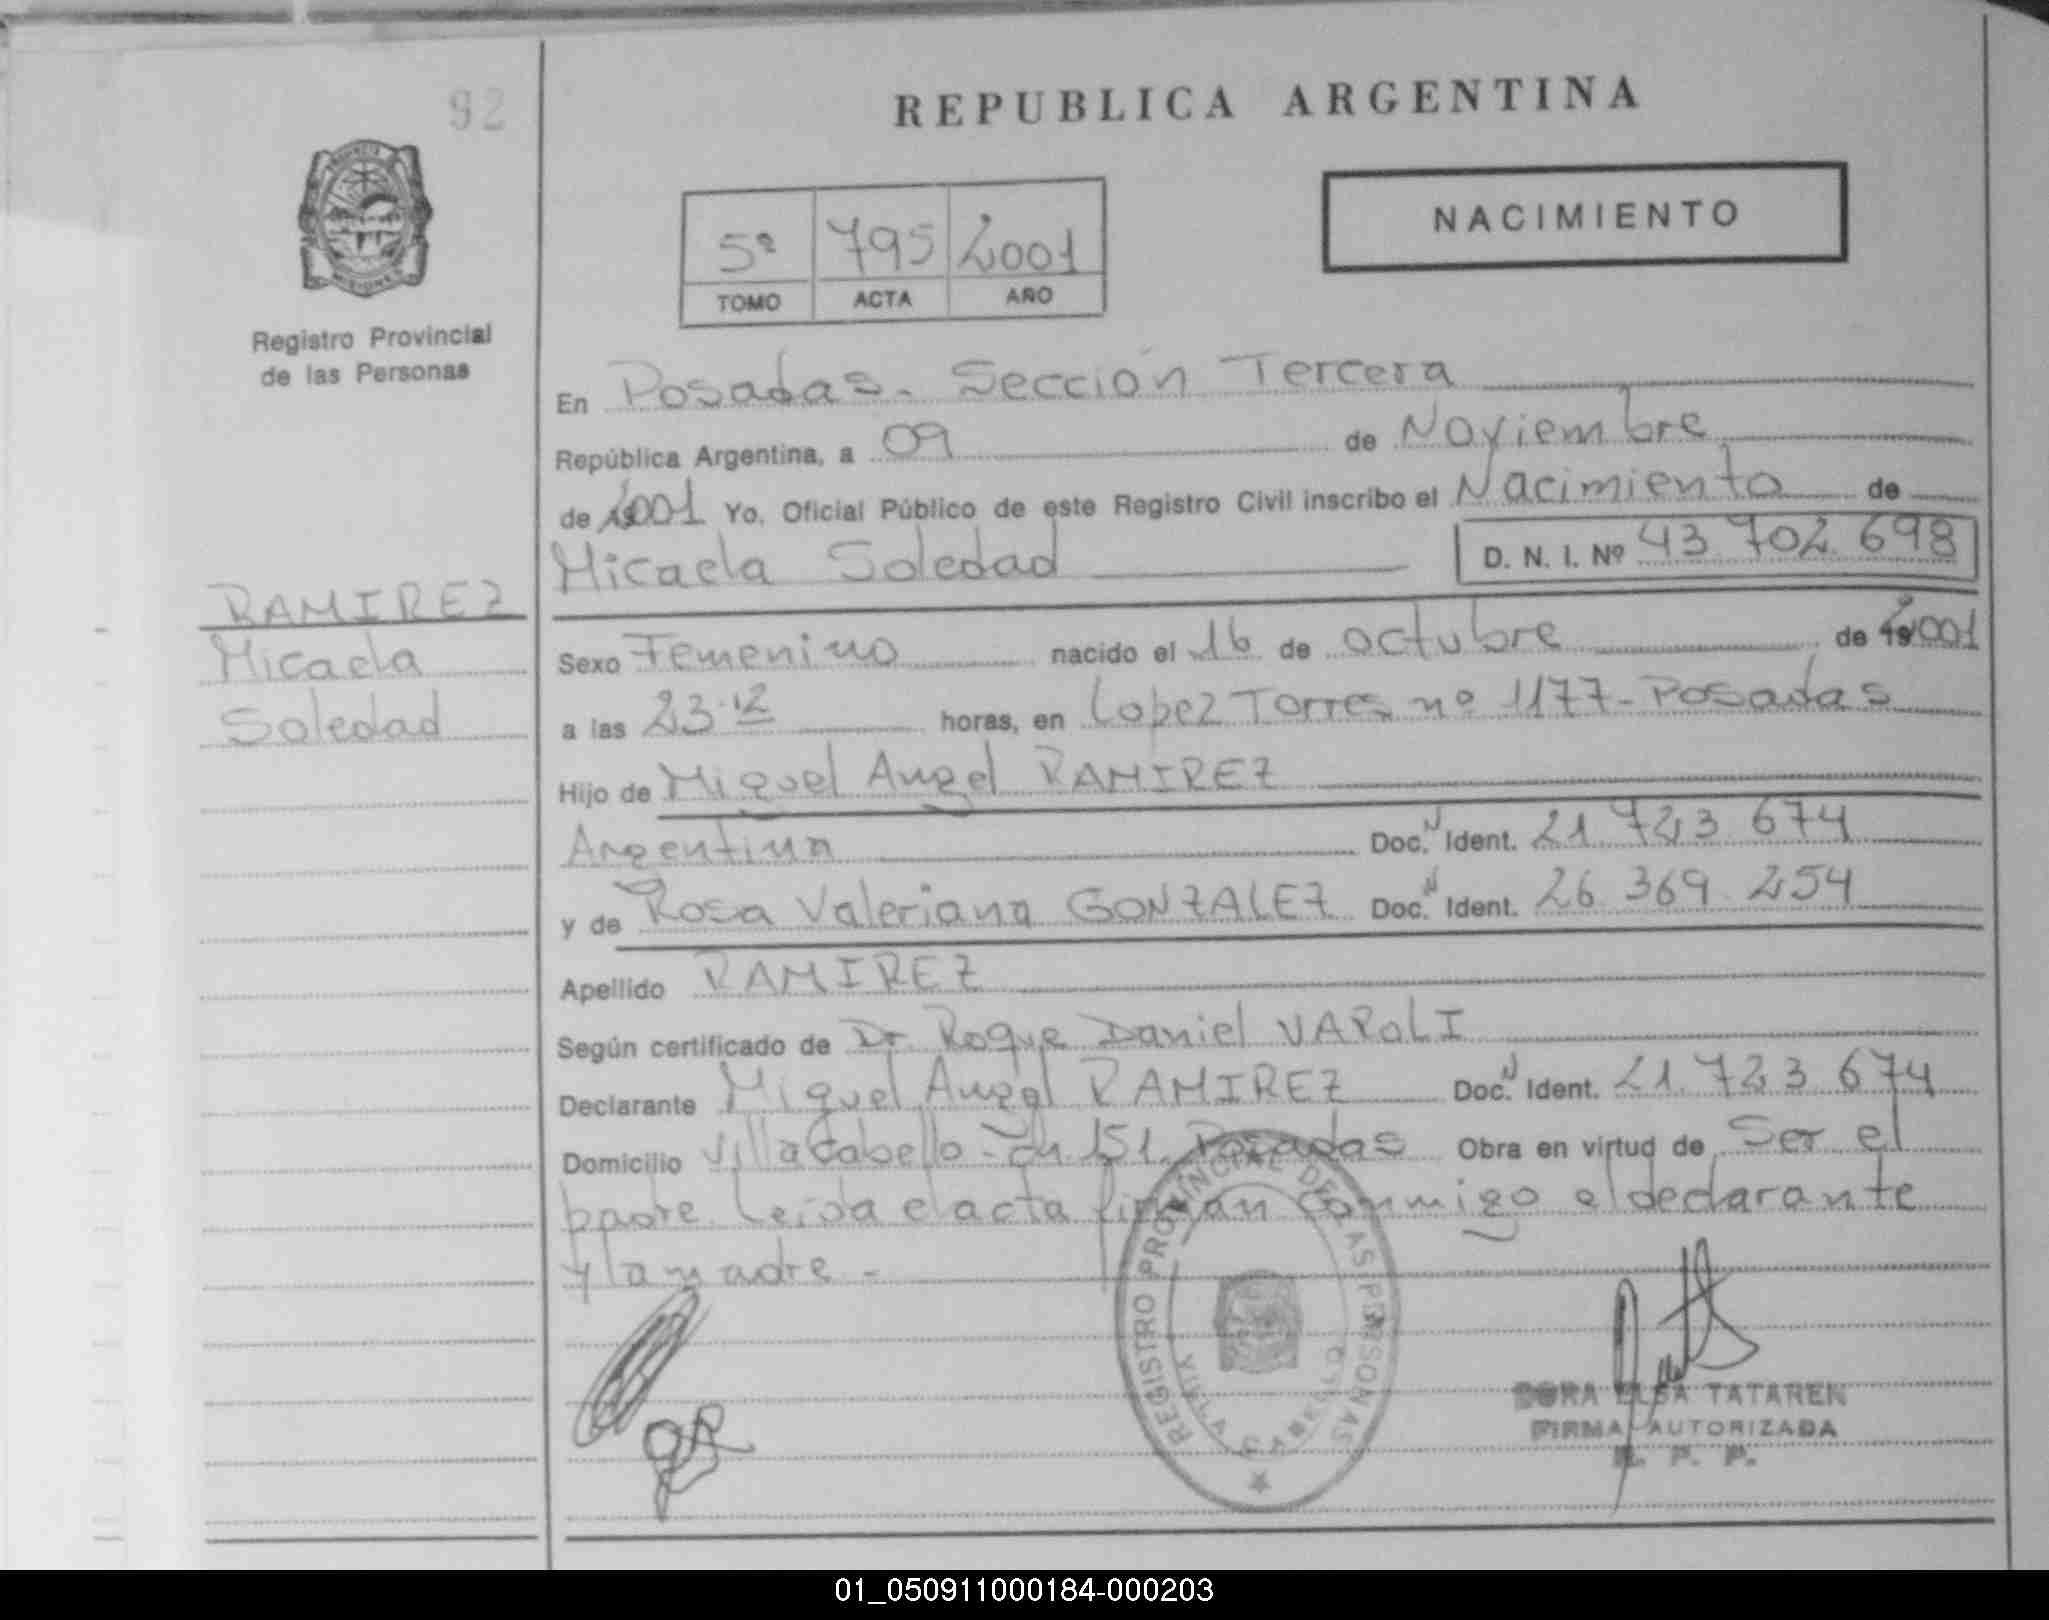 92
REPUBLICA ARGENTINA
NACIMIENTO
5º 795 2001
TOMO ACTA AÑO
PROVINCIA
MISIONES
Registro Provincial
de las Personas
En Posadas. Sección Tercera
República Argentina, a 09 de Noviembre
de 2001 Yo, Oficial Público de este Registro Civil inscribo el Nacimiento de
Micaela Soledad D. N. I. Nº 43 702 698
RAMIREZ
Micaela
Soledad
Sexo Femenino nacido el 16 de octubre de 2001
a las 23.12 horas, en Lopez Torres nº 1177 - Posadas
Hijo de Miguel Angel RAMIREZ
Argentina Doc. N Ident. 21 723 674
y de Rosa Valeriana GONZALEZ Doc. N Ident. 26 369 254
Apellido RAMIREZ
Según certificado de Dr. Roque Daniel VAROLI
Declarante Miguel Angel RAMIREZ Doc. N Ident. 21 723 674
Domicilio Villa Cabello - Ch 151. Posadas Obra en virtud de Ser el
padre. Leida el acta firman conmigo el declarante
y la madre -
REGISTRO PROVINCIAL DE LAS PERSONAS
VILLA CABELLO
DORA ELSA TATAREN
FIRMA AUTORIZADA
R. P. P.
01_050911000184-000203